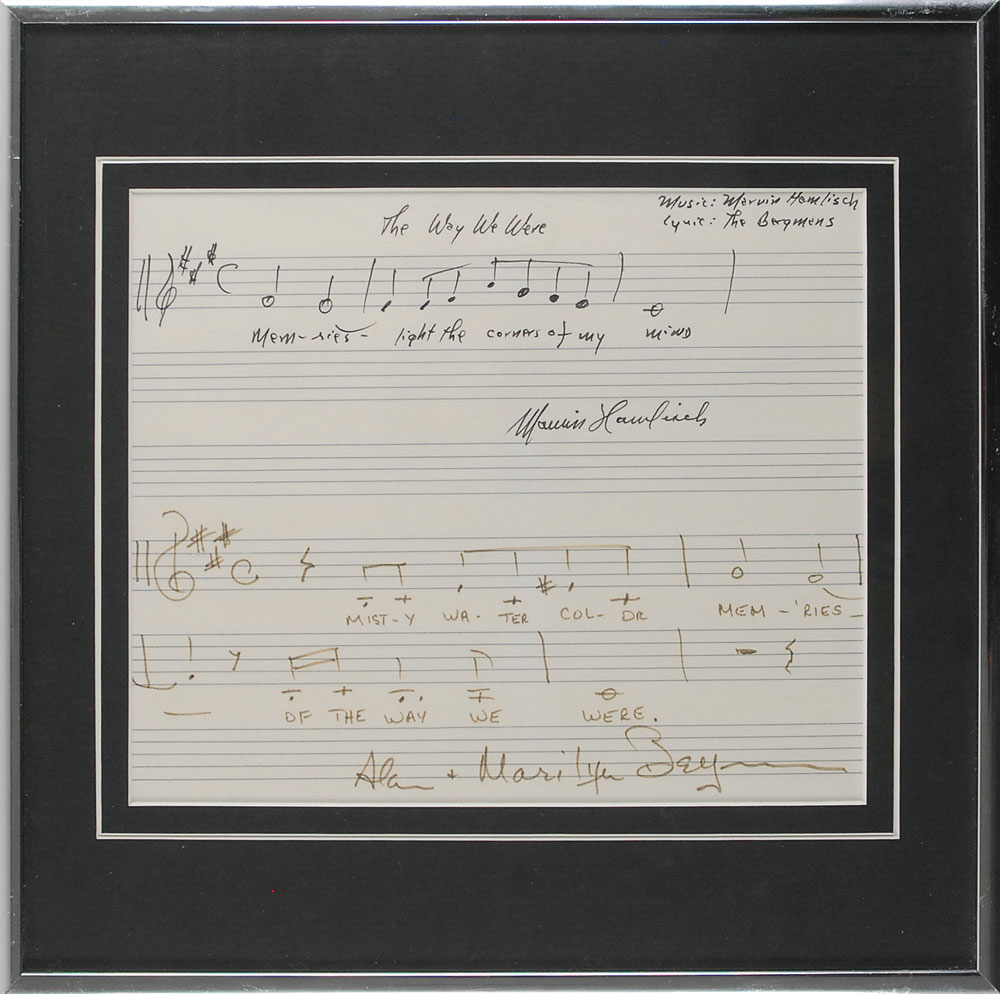 The Way We Were
Music: Marvin Hamlisch
Lyric: The Bergmans
Mem-ries- light the corners of my mind
Marvin Hamlisch
MIST-Y WA- TER COL- OR MEM-'RIES-
OF THE WAY WE WERE.
Alan + Marilyn Bergman